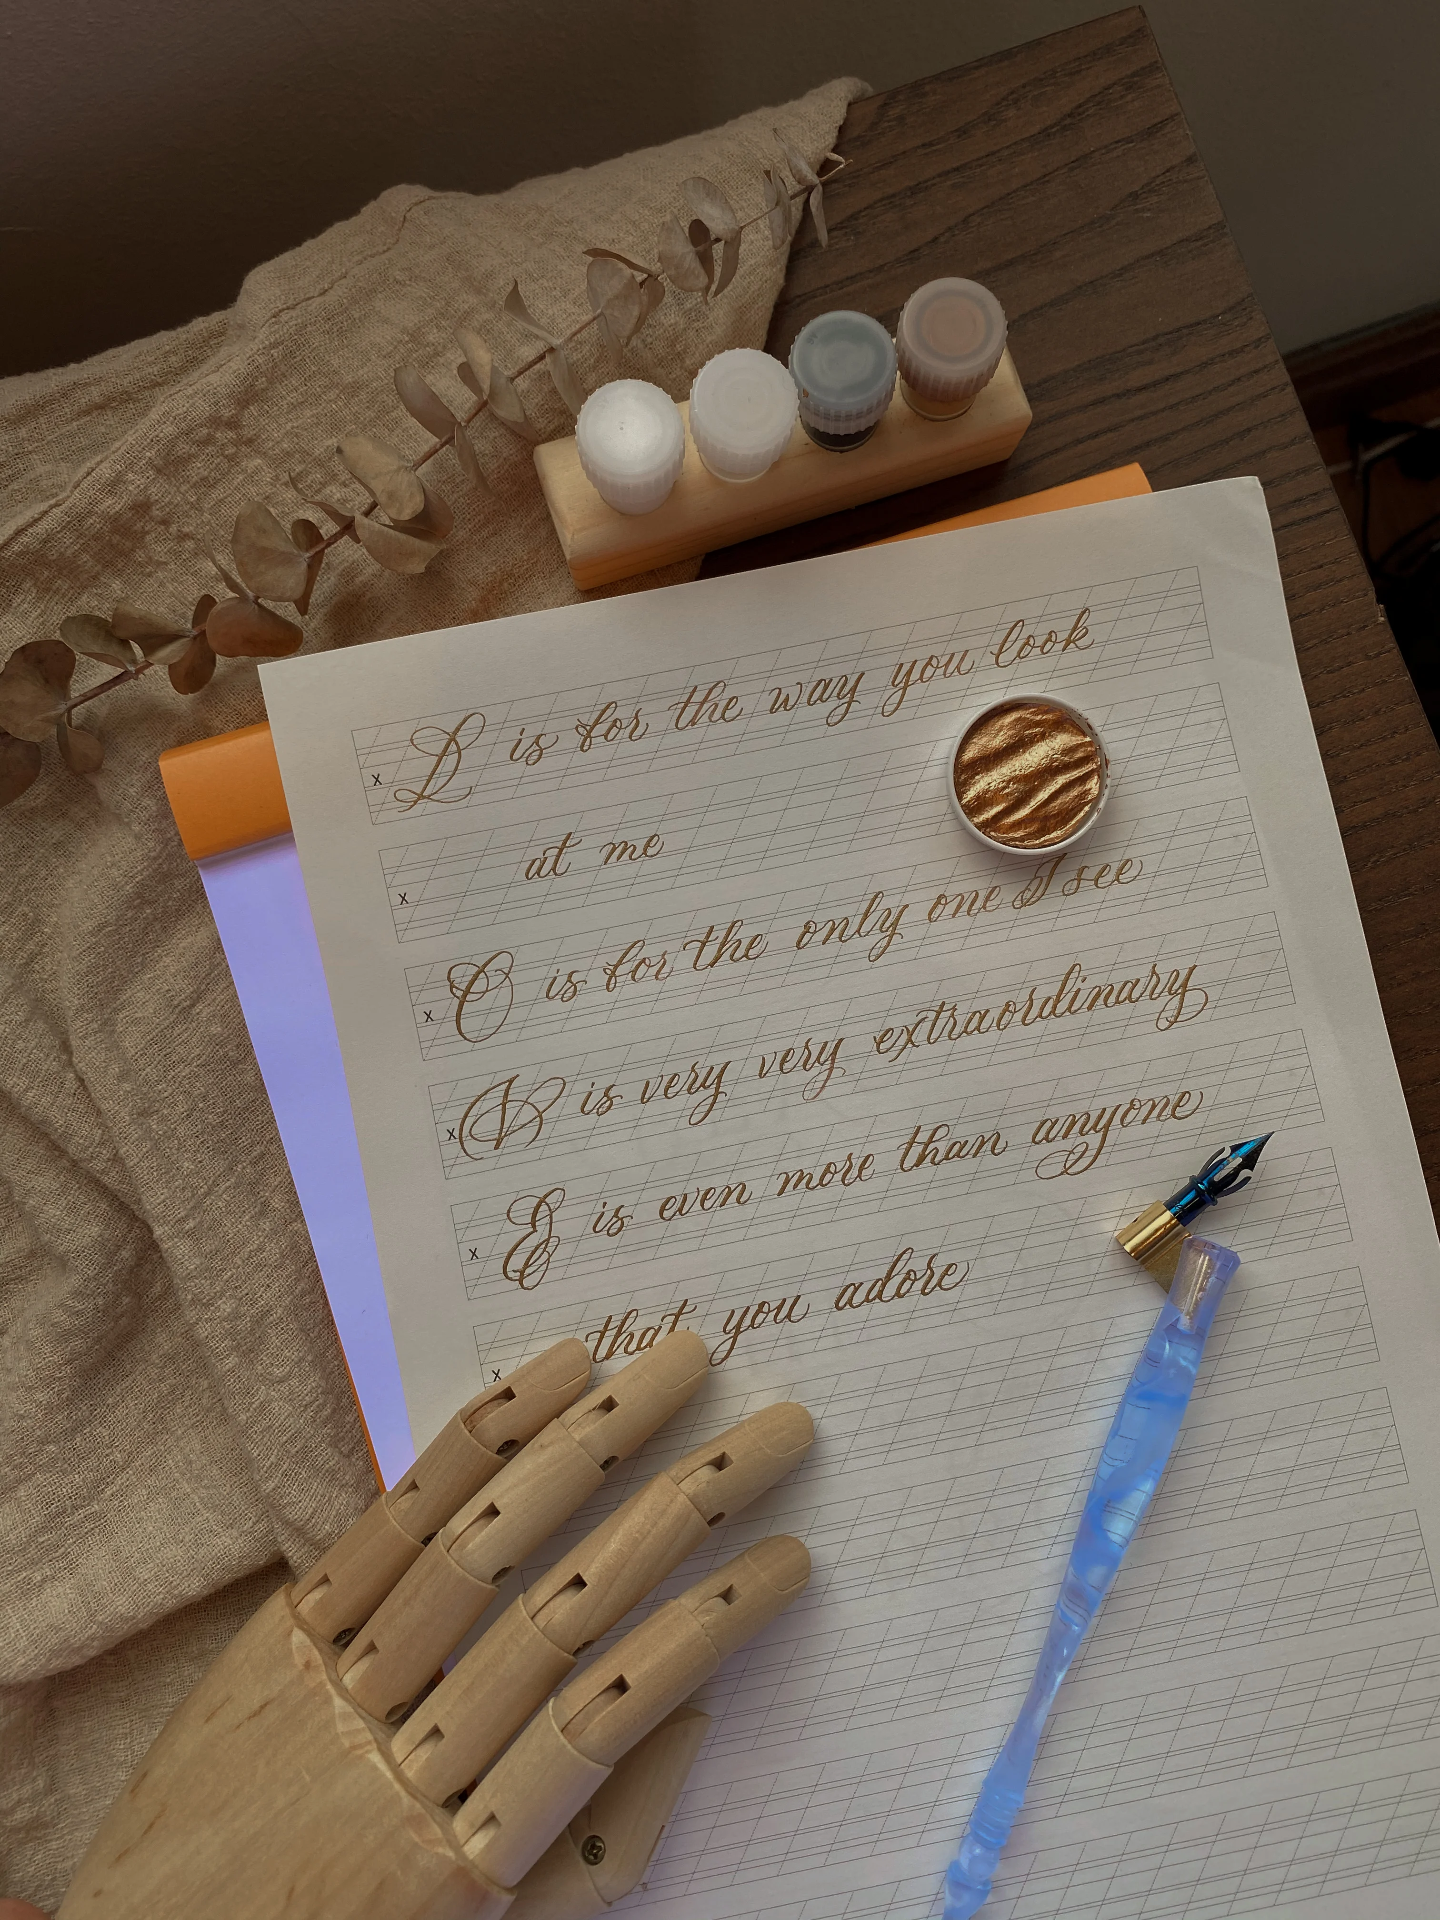 L is for the way you look
x
at me
x
O is for the only one I see
x
V is very very extraordinary
x
E is even more than anyone
x
that you adore
x